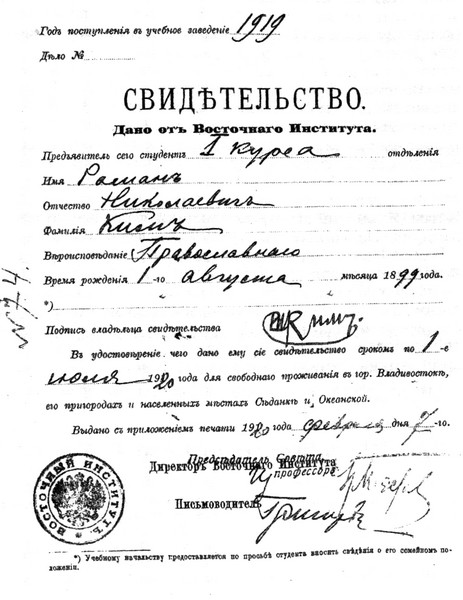 Годъ поступленія въ учебное заведеніе 1919
Дѣло №
СВИДѢТЕЛЬСТВО.
Дано отъ Восточнаго Института.
Предъявитель сего студентъ I курса отдѣленія
Имя Романъ
Отчество Николаевичъ
Фамилія Кимъ
Вѣроисповѣданіе Православнаго
Время рожденія 1-го августа мѣсяца 1899 года.
*)
Подпись владѣльца свидѣтельства Р Кимъ
Въ удостовѣреніе чего дано ему сіе свидѣтельство срокомъ по 1-е
іюля 1920 года для свободнаго проживанія въ гор. Владивостокѣ,
его пригородахъ и населенныхъ мѣстахъ Сѣданкѣ и Океанской.
Выдано съ приложеніемъ печати 1920 года февраля дня 7-го.
Предсѣдатель Совѣта
Директоръ Восточнаго Института
профессоръ
Письмоводитель
ВОСТОЧНЫЙ ИНСТИТУТЪ
*) Учебному начальству предоставляется по просьбѣ студента вносить свѣдѣнія о его семейномъ по-
ложеніи.